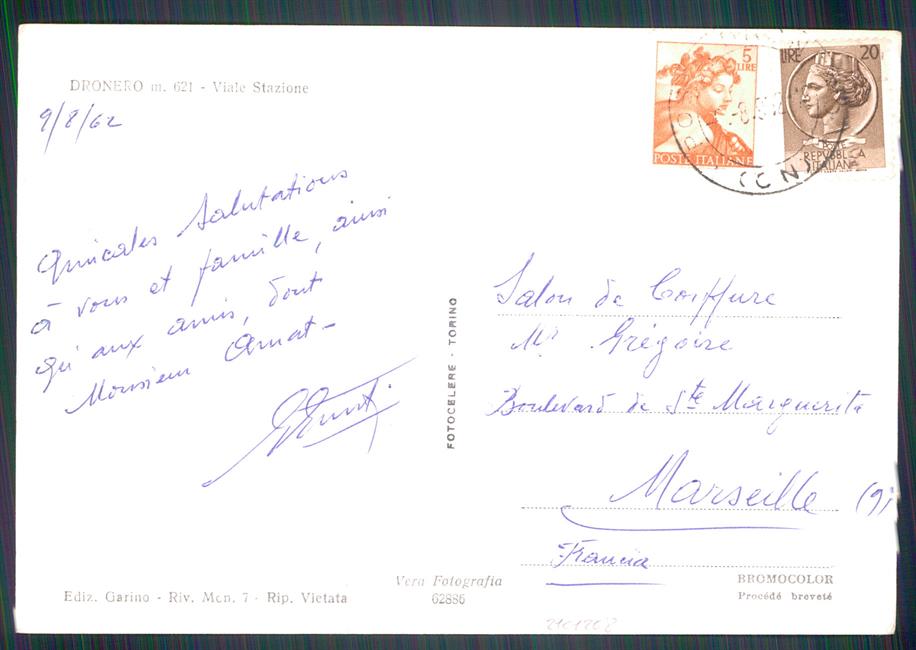 DRONERO m. 621 - Viale Stazione
9/8/62
Amicales Salutations
à vous et famille, ainsi
qu'aux amis, dont
Monsieur Amat-
5
LIRE
POSTE ITALIANE
LIRE 20
POSTE
REPVBBLICA
ITALIANA
(CN)
FOTOCELERE - TORINO
Salon de Coiffure
Mr Grégoire
Boulevard de Ste Marguerite
Marseille (9)
Francia
Vera Fotografia
62886
Ediz. Garino - Riv. Mon. 7 - Rip. Vietata
BROMOCOLOR
Procédé breveté